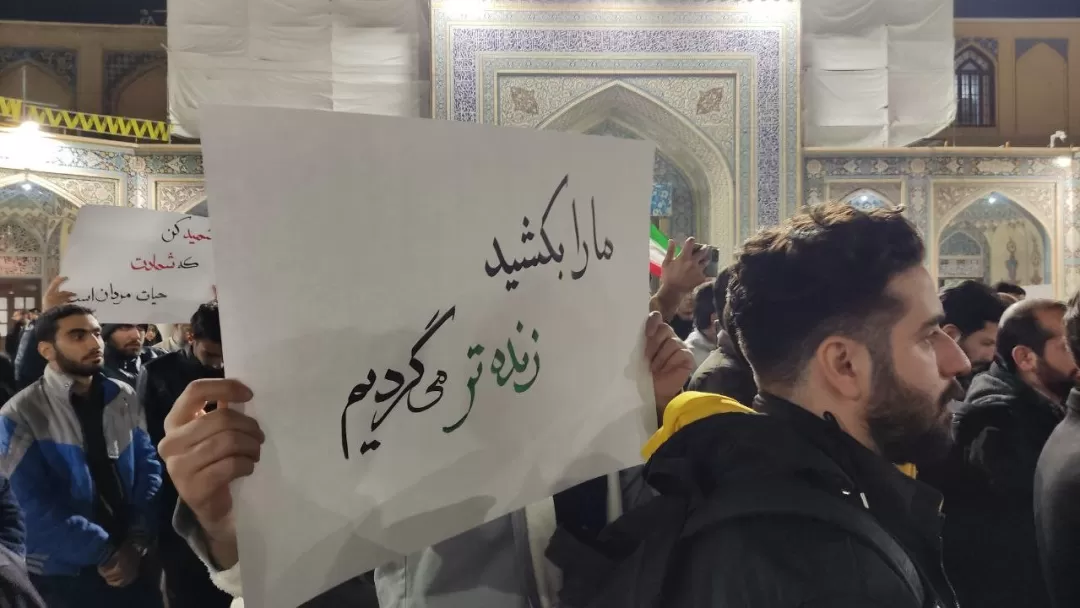 ما را بکشید
زنده تر می‌گردیم
کن
که شهادت
حیات مردان است